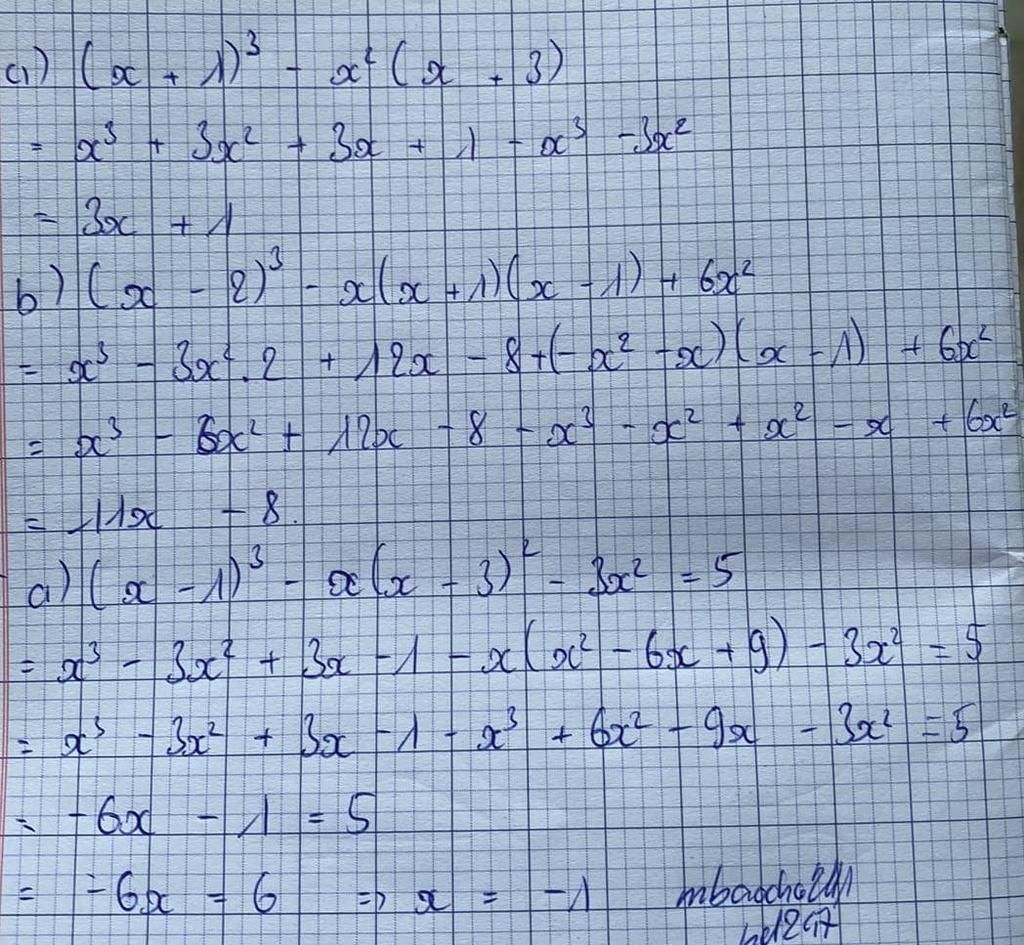 a) (x + 1)³ - x² (x + 3)
= x³ + 3x² + 3x + 1 - x³ - 3x²
= 3x + 1
b) (x - 2)³ - x(x + 1)(x - 1) + 6x²
= x³ - 3x². 2 + 12x - 8 + (-x² - x)(x - 1) + 6x²
= x³ - 6x² + 12x - 8 - x³ - x² + x² - x + 6x²
= 11x - 8.
a) (x - 1)³ - x(x - 3)² - 3x² = 5
= x³ - 3x² + 3x - 1 - x(x² - 6x + 9) - 3x² = 5
= x³ - 3x² + 3x - 1 - x³ + 6x² - 9x - 3x² = 5
= -6x - 1 = 5
= -6x = 6 => x = -1